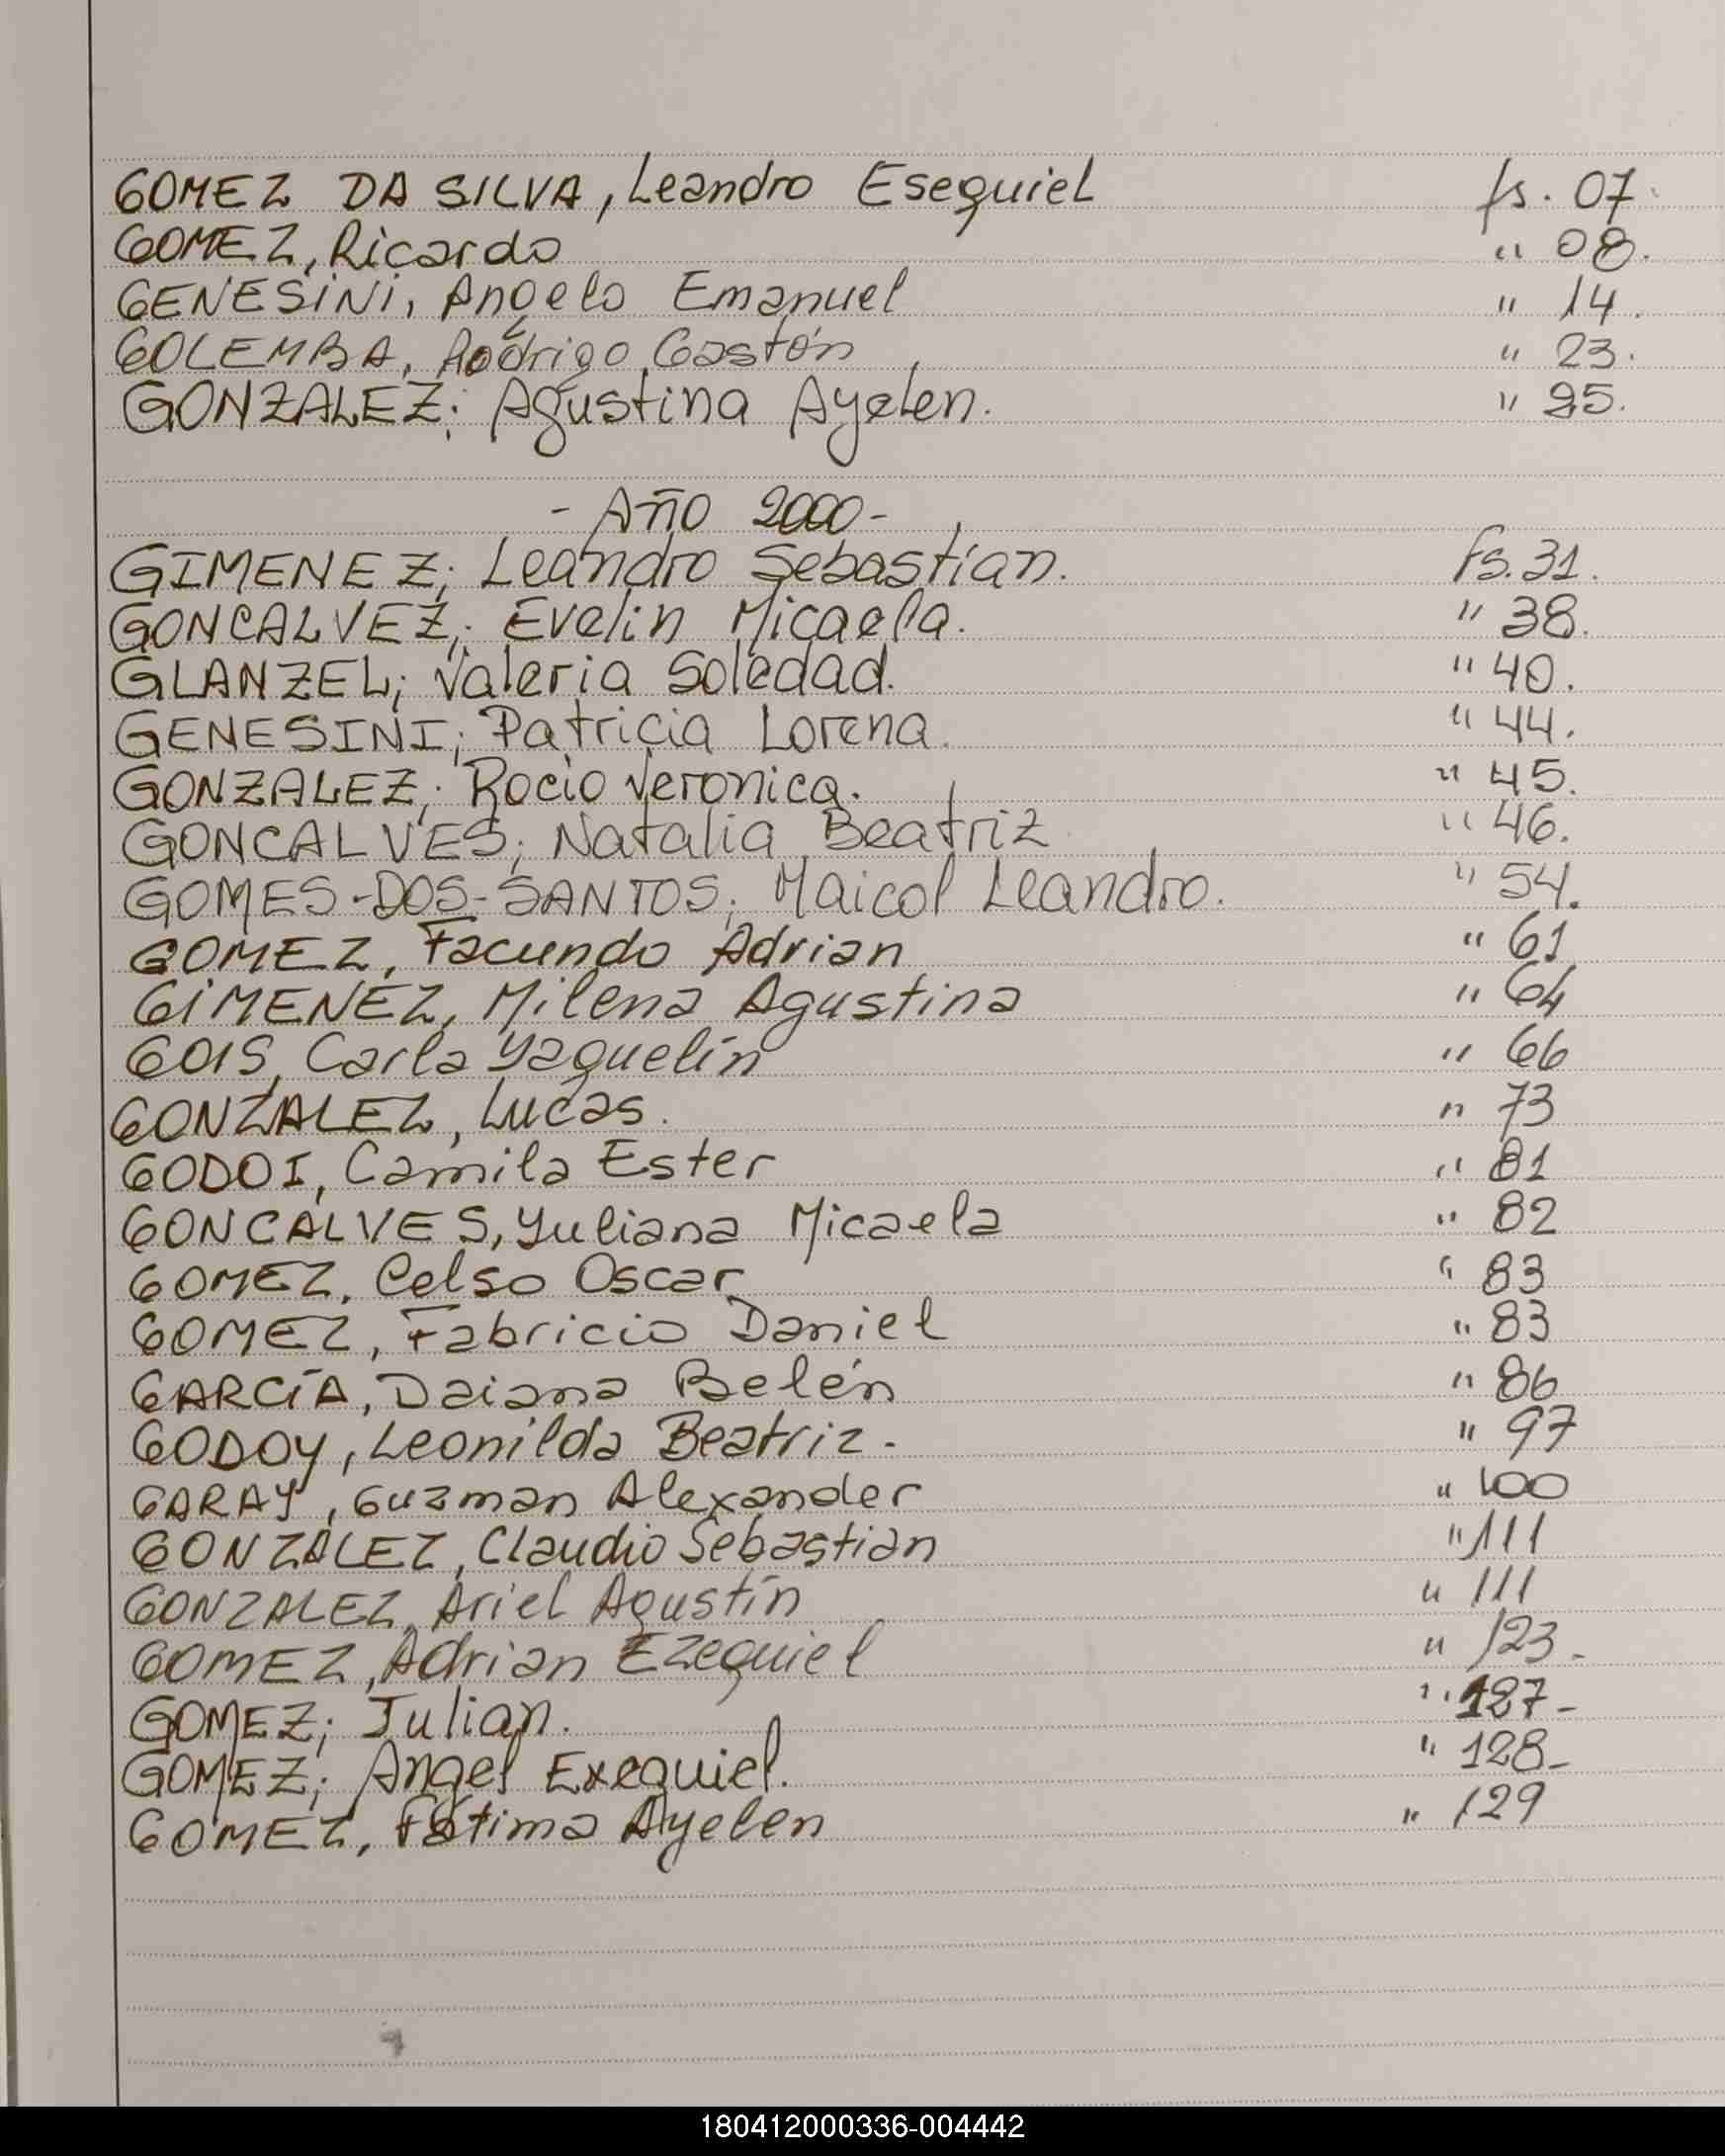 GOMEZ DA SILVA, Leandro Esequiel fs. 07.
GOMEZ, Ricardo " 08.
GENESiNi, Angelo Emanuel " 14.
GOLEMBA, Rodrigo Gastón " 23.
GONZALEZ; Agustina Ayelen. " 25.
- AÑO 2000-
GIMENEZ; Leandro Sebastían. Fs. 31.
GONCALVEZ; Evelin Micaela. " 38.
GLANZEL; Valeria Soledad. " 40.
GENESINI; Patricia Lorena. " 44.
GONZALEZ; Rocio Veronica. " 45.
GONCALVES; Natalia Beatriz " 46.
GOMES-DOS-SANTOS; Maicol Leandro. " 54.
GOMEZ, Facundo Adrian " 61
GiMENEZ, Milena Agustina " 64
GOIS, Carla Yaquelín " 66
GONZALEZ, Lucas. " 73
GODOI, Camila Ester " 81
GONCALVES, Yuliana Micaela " 82
GOMEZ, Celso Oscar " 83
GOMEZ, Fabricio Daniel " 83
GARCÍA, Daiana Belén " 86
GODOY, Leonilda Beatriz. " 97
GARAY, Guzman Alexander " 100
GONZALEZ, Claudio Sebastian " 111
GONZALEZ, Ariel Agustín " 111
GOMEZ, Adrian Ezequiel " 123-
GOMEZ; Julian. " 127-
GOMEZ; Angel Exequiel. " 128-
GOMEZ, Fátima Ayelen " 129
180412000336-004442